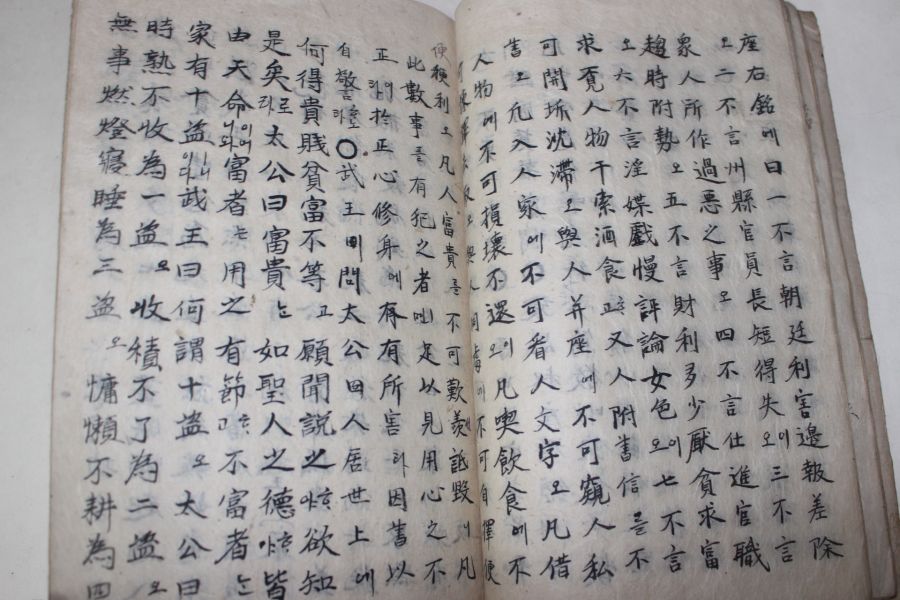 座右銘에曰一不言朝廷利害邊報差除
오二不言州縣官員長短得失오이三不言
衆人所作過惡之事오四不言仕進官職
趨時附勢오五不言財利多少厭貧求富
오六不言淫媒戲慢評論女色오이七不言
求覓人物干索酒食고又人附書信를不
可開坼沈滯오與人幷座에不可窺人私
書오凡入人家에不可看人文字오凡借
人物에不可損壞不還오이凡喫飮食에不
與人同處에不可自擇便
便利오凡人富貴를不可歎羨詆毁니凡
此數事를有犯之者면足以見用心之不
正이라於正心修身에存有所害라因書以
自警하노라○武王이問太公曰人居世上에
何得貴賤貧富不等고願聞說之하야欲知
是矣로라太公曰富貴는如聖人之德하야皆
由天命이어니와富者는用之有節하고不富者는
家有十盜니이다武王曰何謂十盜오太公曰
時熟不收為一盜오收積不了為二盜오
無事燃燈寢睡為三盜오慵懶不耕為四